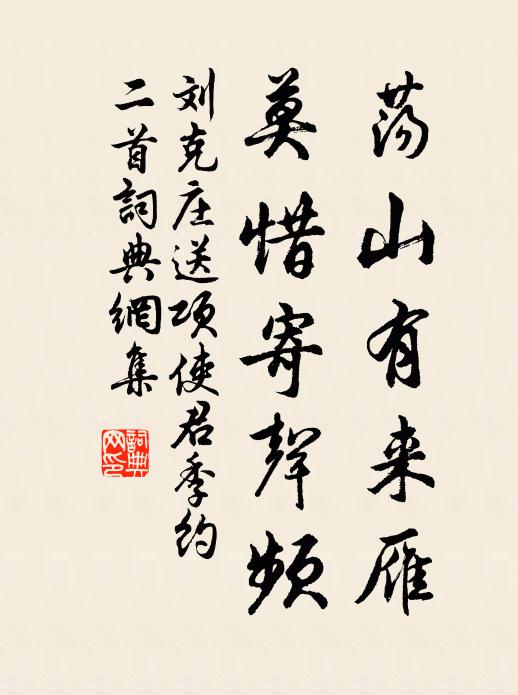 荡山有来雁
莫惜寄聲頻
刘克庄送项使君季约
二首詞典網集
詞典網印